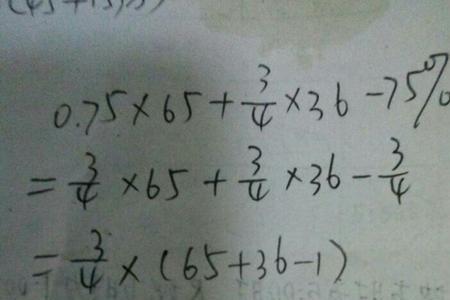 0.75×65+3/4×36-75%
=3/4×65+3/4×36-3/4
=3/4×(65+36-1)